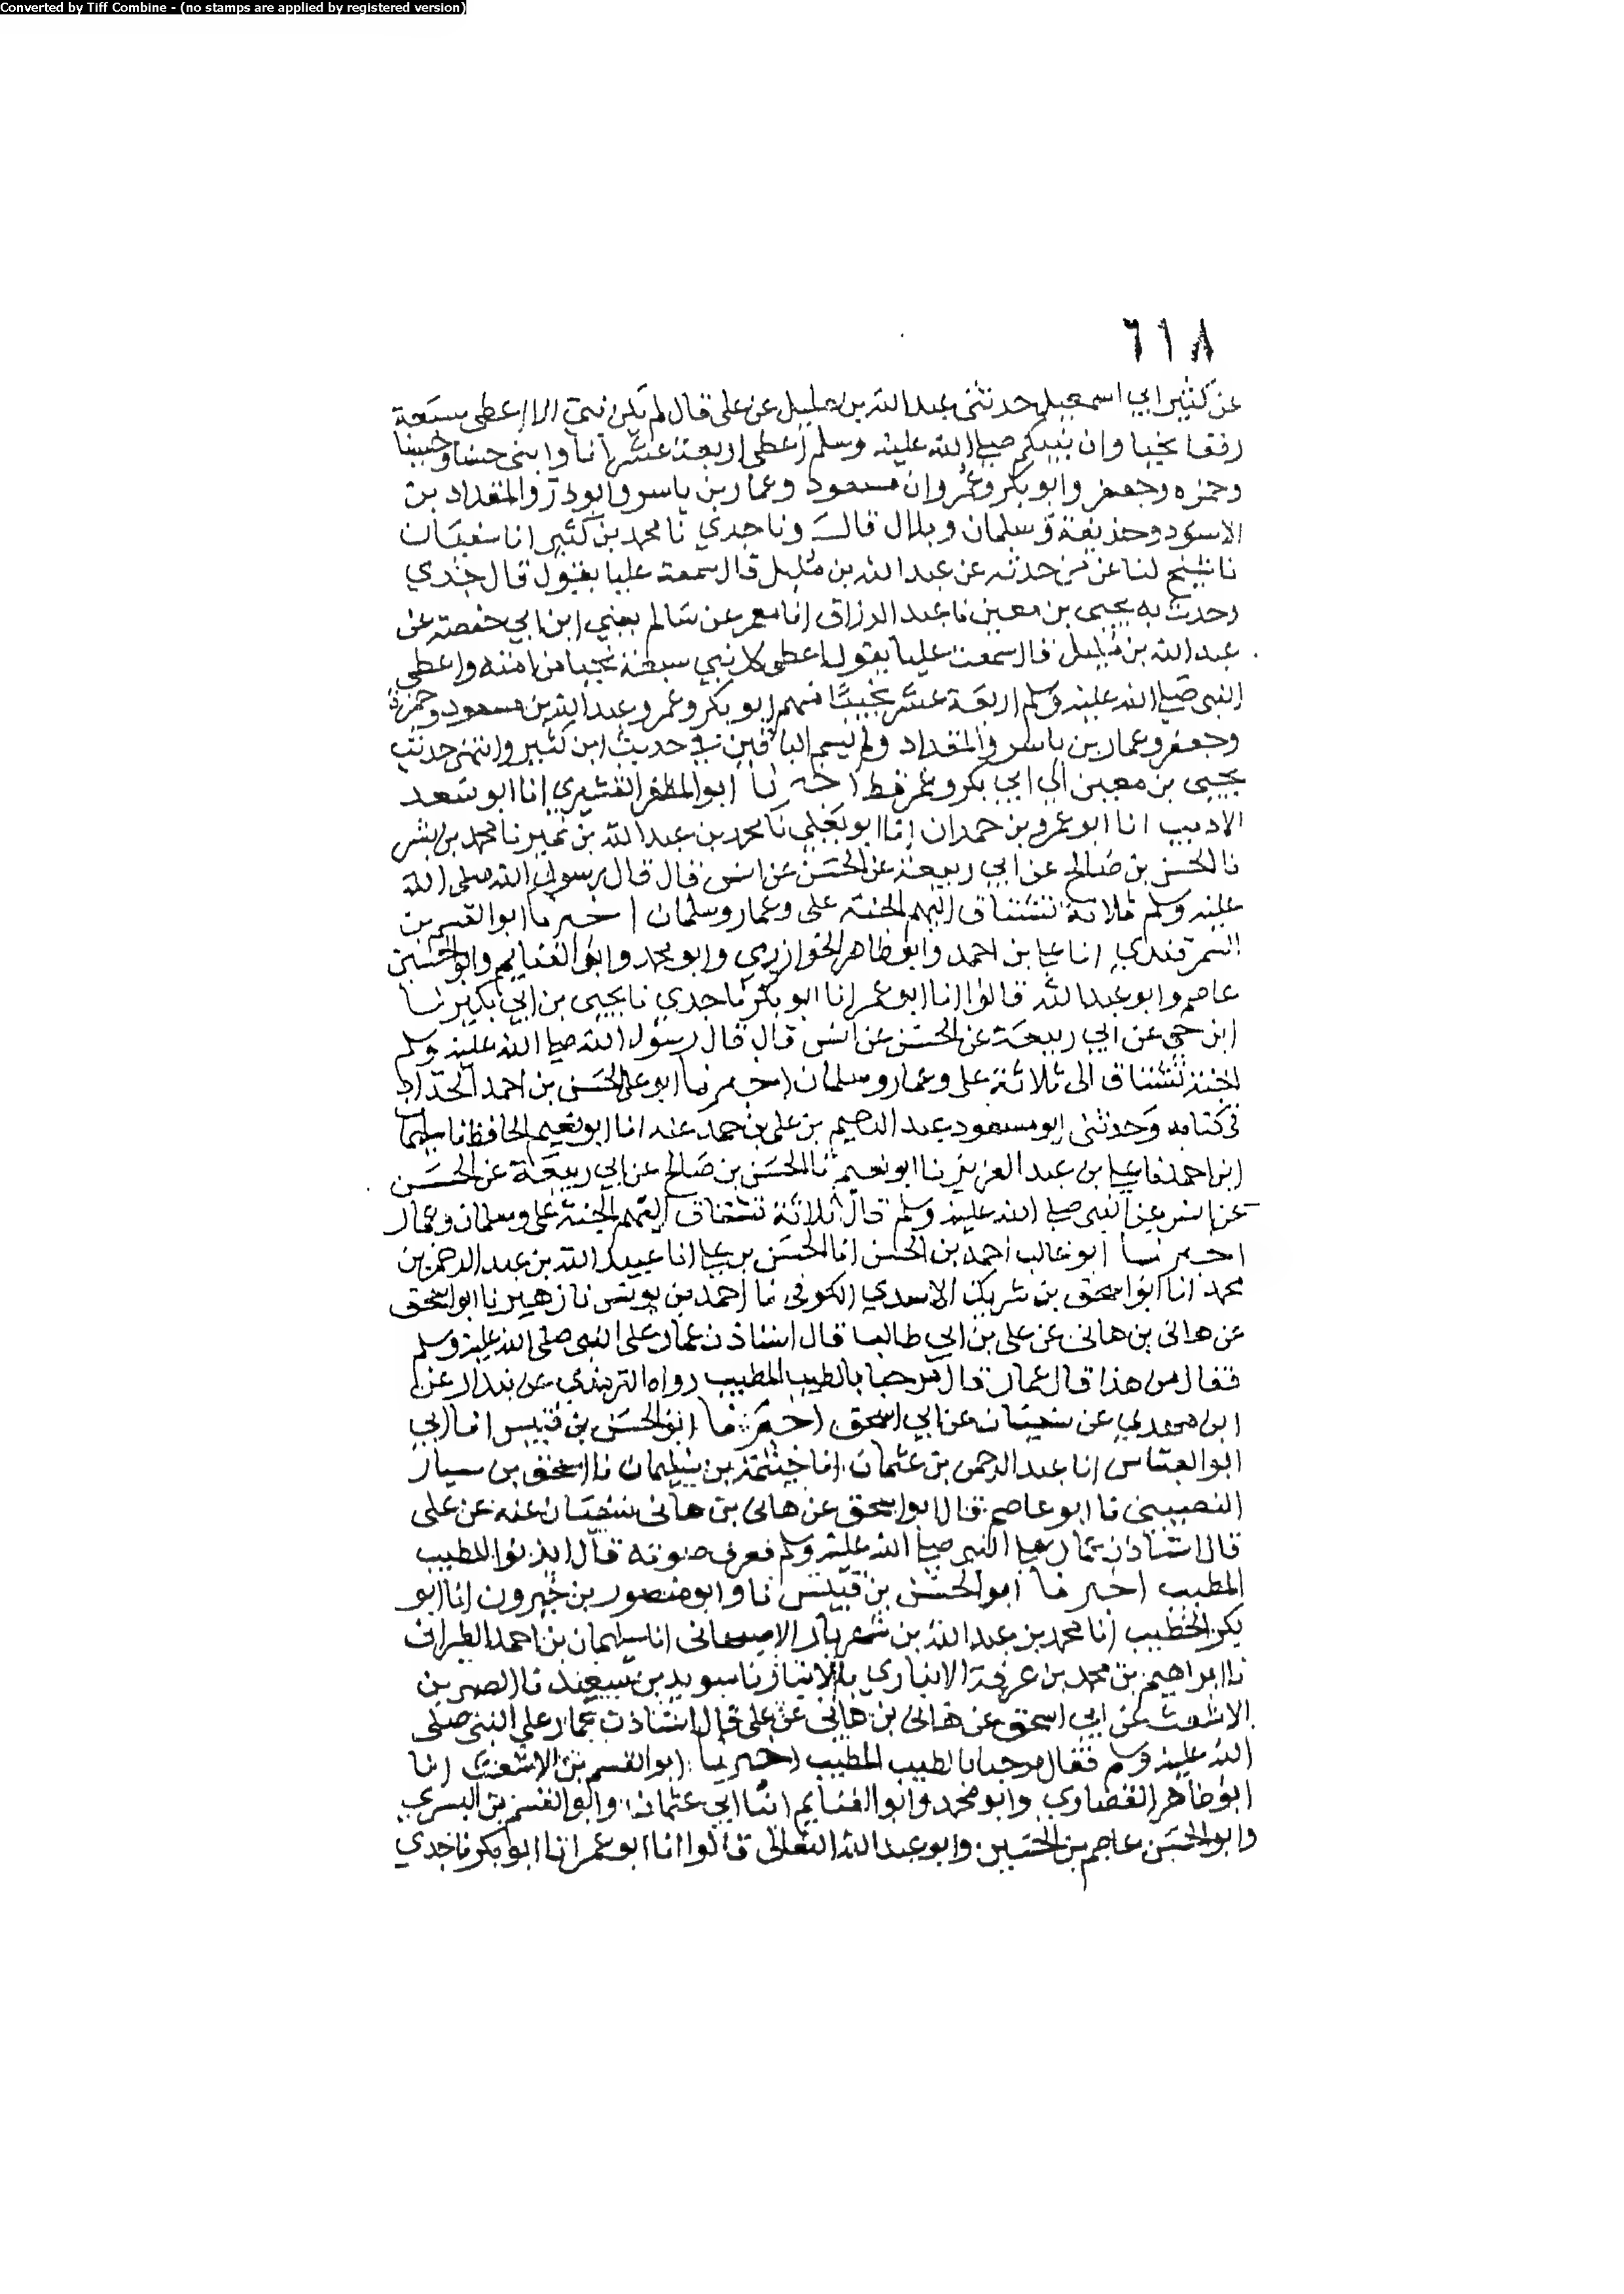 Converted by Tiff Combine - (no stamps are applied by registered version)
٦١٨
عن كثير ابي اسمعيل حدثني عبد الله بن مليل عن علي قال لم يكن نبي الا اعطى سبعة
رفقا نجبا وان نبيكم صلى الله عليه وسلم اعطى اربعة عشر انا وابني حسنا وحسينا
وحمزه وجعفر وابو بكر وعمر وابن مسعود وعمار بن ياسر وابو ذر والمقداد بن
الاسود وحذيفة وسلمان وبلال قال ونا جدي نا محمد بن كثير انا سفيان
نا شيخ لنا عن من حدثه عن عبد الله بن مليل قال سمعت عليا يقول قال جدي
وحدث به يحيى بن معين نا عبد الرزاق انا معمر عن سالم يعني ابن ابي حفصة عن
عبد الله بن مليل قال سمعت عليا يقول اعطى كل نبي سبعة نجبا من امته واعطى
النبي صلى الله عليه وسلم اربعة عشر نجيبا منهم ابو بكر وعمر وعبد الله بن مسعود وحمزة
وجعفر وعمار بن ياسر والمقداد ولم يسم الباقين في حديث ابن كثير وانتهى حديث
يحيى بن معين الى ابي بكر وعمر فقط اخبرنا ابو المظفر القشيري انا ابو سعد
الاديب انا ابو عمرو بن حمدان انا ابو يعلى نا محمد بن عبد الله بن نمير نا محمد بن بشر
نا الحسن بن صالح عن ابي ربيعة عن الحسن عن انس قال قال رسول الله صلى الله
عليه وسلم ثلاثة تشتاق اليهم الجنة علي وعمار وسلمان اخبرنا ابو القسم بن
السمرقندي انا علي بن احمد وابو طاهر الخوارزمي وابو محمد وابو الغنايم وابو الحسين
عاصم وابو عبد الله قالوا انا ابو عمر انا ابو بكر نا جدي نا يحيى بن ابي بكير نا
ابن حي عن ابي ربيعة عن الحسن عن انس قال قال رسول الله صلى الله عليه وسلم
الجنة تشتاق الى ثلاثة علي وعمار وسلمان اخبرنا ابو علي الحسن بن احمد الحداد
في كتابه وحدثني ابو مسعود عبد الرحيم بن علي بن حمد عنه انا ابو نعيم الحافظ نا سليمان
ابن احمد نا علي بن عبد العزيز نا ابو نعيم نا الحسن بن صالح عن ابي ربيعة عن الحسن
عن انس عن النبي صلى الله عليه وسلم قال ثلاثة تشتاق اليهم الجنة علي وسلمان وعمار
اخبرنا ابو غالب احمد بن الحسن انا الحسن بن علي انا عبيد الله بن عبد الرحمن بن
محمد انا ابو اسحق بن شريك الاسدي الكوفي نا احمد بن يونس نا زهير نا ابو اسحق
عن هانئ بن هانئ عن علي بن ابي طالب قال استاذن عمار على النبي صلى الله عليه وسلم
فقال من هذا قال عمار قال مرحبا بالطيب المطيب رواه الترمذي عن بندار عن
ابن مهدي عن سفيان عن ابي اسحق اخبرنا ابو الحسن بن قبيس انا ابي
ابو العباس انا عبد الرحمن بن عثمان انا خيثمة بن سليمان نا اسحق بن سيار
النصيبيني نا ابو عاصم قال ابو اسحق عن هانئ بن هانئ سفيان عنه عن علي
قال استاذن عمار على النبي صلى الله عليه وسلم فعرف صوته قال ايذنوا للطيب
المطيب اخبرنا ابو الحسن بن قبيس نا وابو منصور بن خيرون انا ابو
بكر الخطيب انا محمد بن عبد الله بن شهريار الاصبهاني انا سليمان بن احمد الطبراني
نا ابراهيم بن محمد بن عرفة الانباري بالانبار نا سويد بن سعيد نا الصبر بن
الاشعث عن ابي اسحق عن هانئ بن هانئ عن علي قال استاذن عمار على النبي صلى
الله عليه وسلم فقال مرحبا بالطيب المطيب اخبرنا ابو القسم بن الاشعث انا
ابو طاهر القصاري وابو محمد وابو الغنايم ابنا ابي عثمان وابو القسم بن البسري
وابو الحسن عاصم بن الحسين وابو عبد الله النعالي قالوا انا ابو عمر انا ابو بكر نا جدي